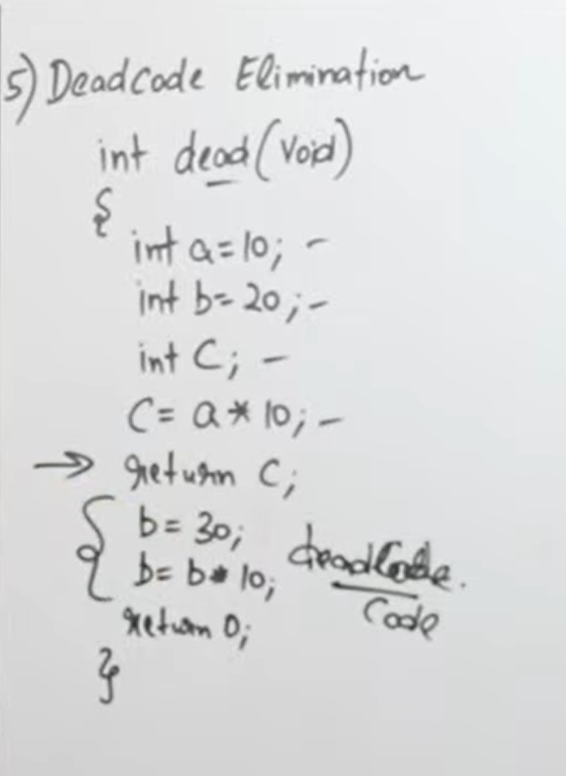 5) Deadcode Elimination
int dead (Void)
{
int a = 10; -
int b = 20; -
int C; -
C = a * 10; -
→ return C;
{ b = 30;
b = b * 10; deadCode.
Code
return 0;
}